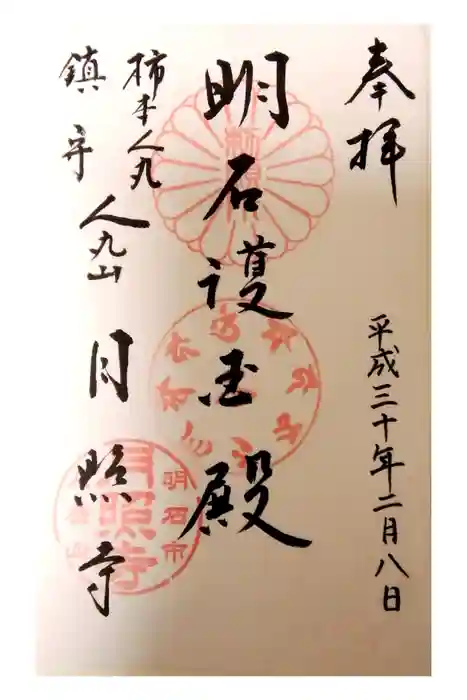 奉拝
平成三十年二月八日
明石護国殿
柿本人丸
鎮守
人丸山
月照寺
明石市
月照寺